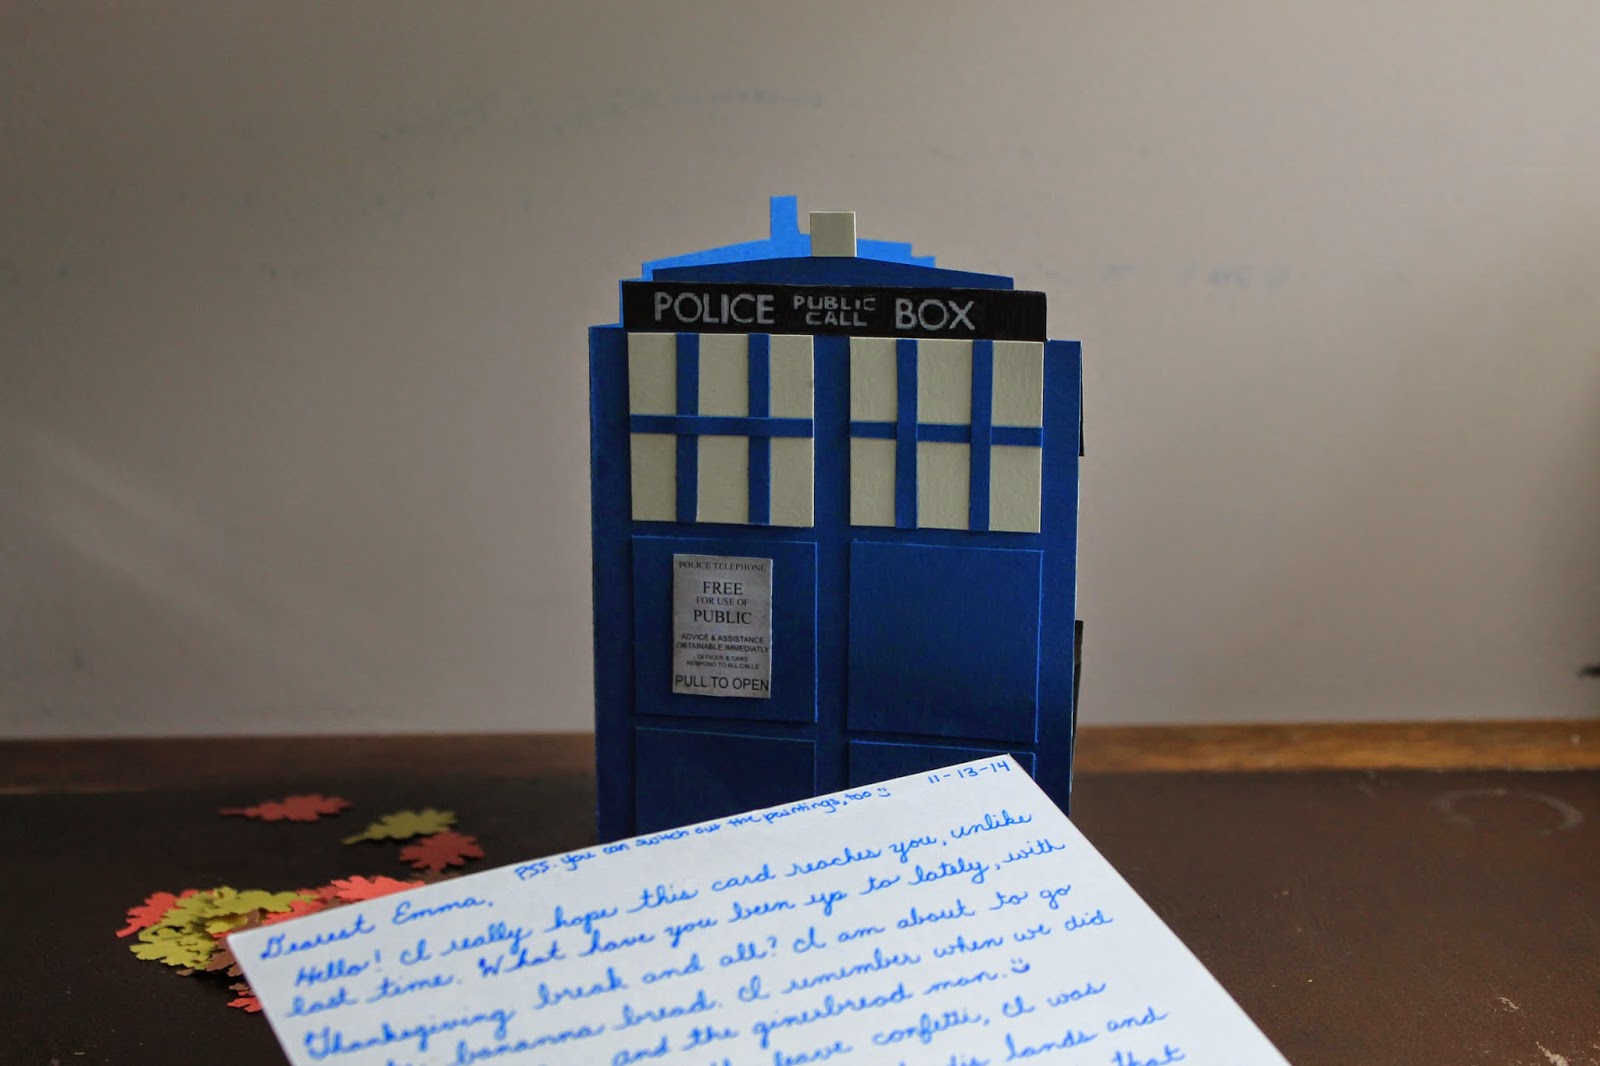 POLICE PUBLIC CALL BOX
POLICE TELEPHONE
FREE
FOR USE OF
PUBLIC
ADVICE & ASSISTANCE
OBTAINABLE IMMEDIATLY
OFFICER & CARS
RESPOND TO ALL CALLS
PULL TO OPEN
11-13-14
PSS. You can switch out the paintings, too
Dearest Emma,
Hello! I really hope this card reaches you, unlike
last time. What have you been up to lately, with
Thanksgiving break and all? I am about to go
bananna bread. I remember when we did
and the ginerbread man.
leave confetti, I was
lands and
that